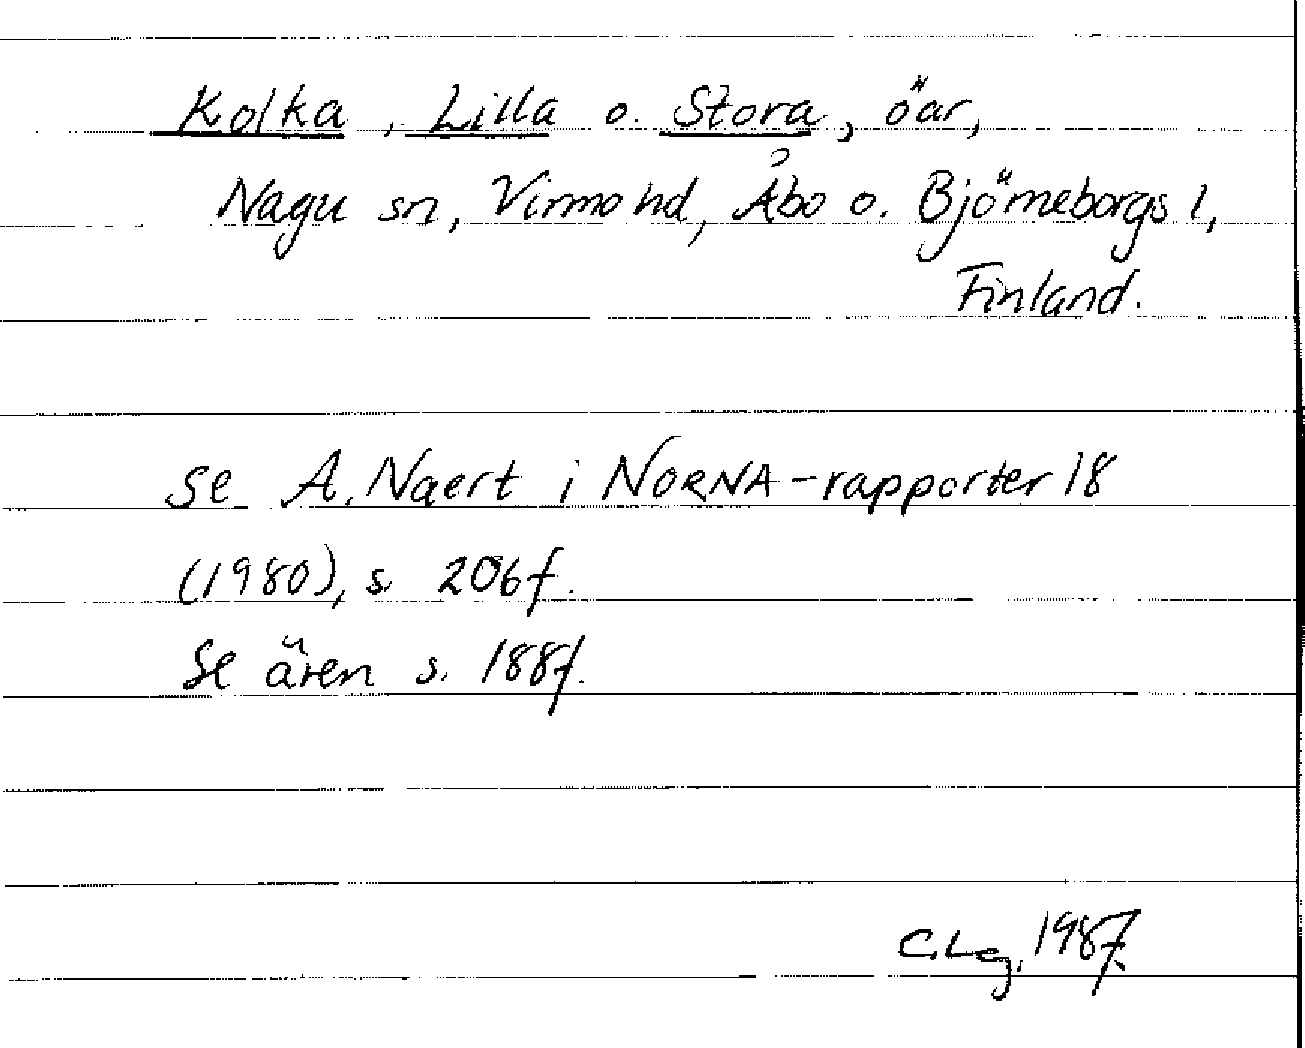 Kolka, Lilla o. Stora, öar,
Nagu sn, Virmo hd, Åbo o. Björneborgs l,
Finland.
se A. Naert i NORNA-rapporter 18
(1980), s 206f.
Se även s. 188f.
C.Lg. 1987.